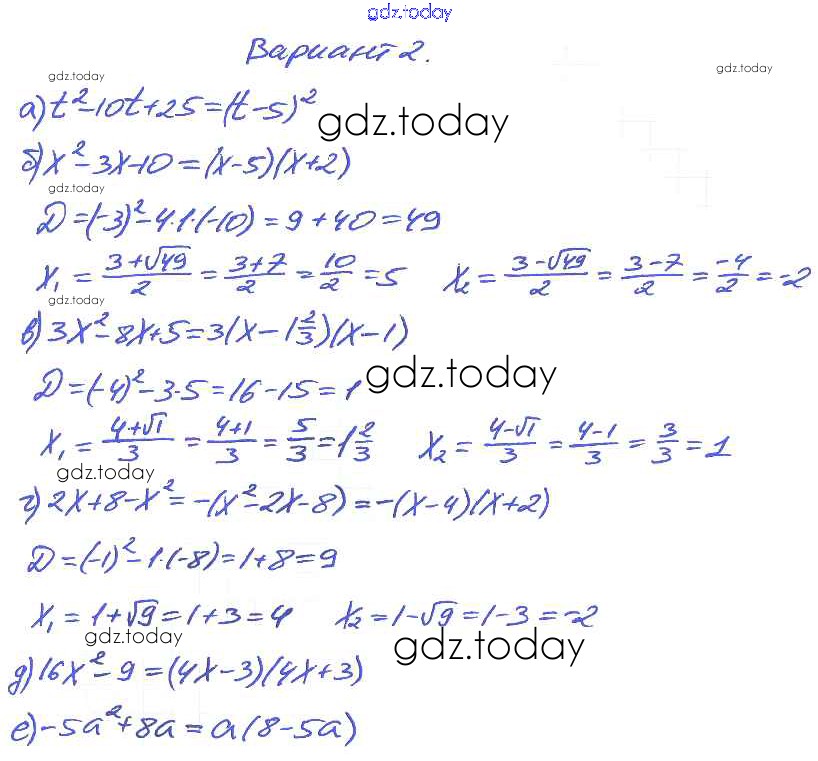 gdz.today
Вариант 2.
gdz.today
gdz.today
а) t² - 10t + 25 = (t - 5)²
gdz.today
б) x² - 3x - 10 = (x - 5)(x + 2)
gdz.today
D = (-3)² - 4·1·(-10) = 9 + 40 = 49
x₁ = (3 + √49)/2 = (3 + 7)/2 = 10/2 = 5 x₂ = (3 - √49)/2 = (3 - 7)/2 = -4/2 = -2
gdz.today
в) 3x² - 8x + 5 = 3(x - 1 2/3)(x - 1)
D = (-4)² - 3·5 = 16 - 15 = 1
gdz.today
x₁ = (4 + √1)/3 = (4 + 1)/3 = 5/3 = 1 2/3 x₂ = (4 - √1)/3 = (4 - 1)/3 = 3/3 = 1
gdz.today
г) 2x + 8 - x² = -(x² - 2x - 8) = -(x - 4)(x + 2)
D = (-1)² - 1·(-8) = 1 + 8 = 9
x₁ = 1 + √9 = 1 + 3 = 4 x₂ = 1 - √9 = 1 - 3 = -2
gdz.today
gdz.today
д) 16x² - 9 = (4x - 3)(4x + 3)
е) -5a² + 8a = a(8 - 5a)